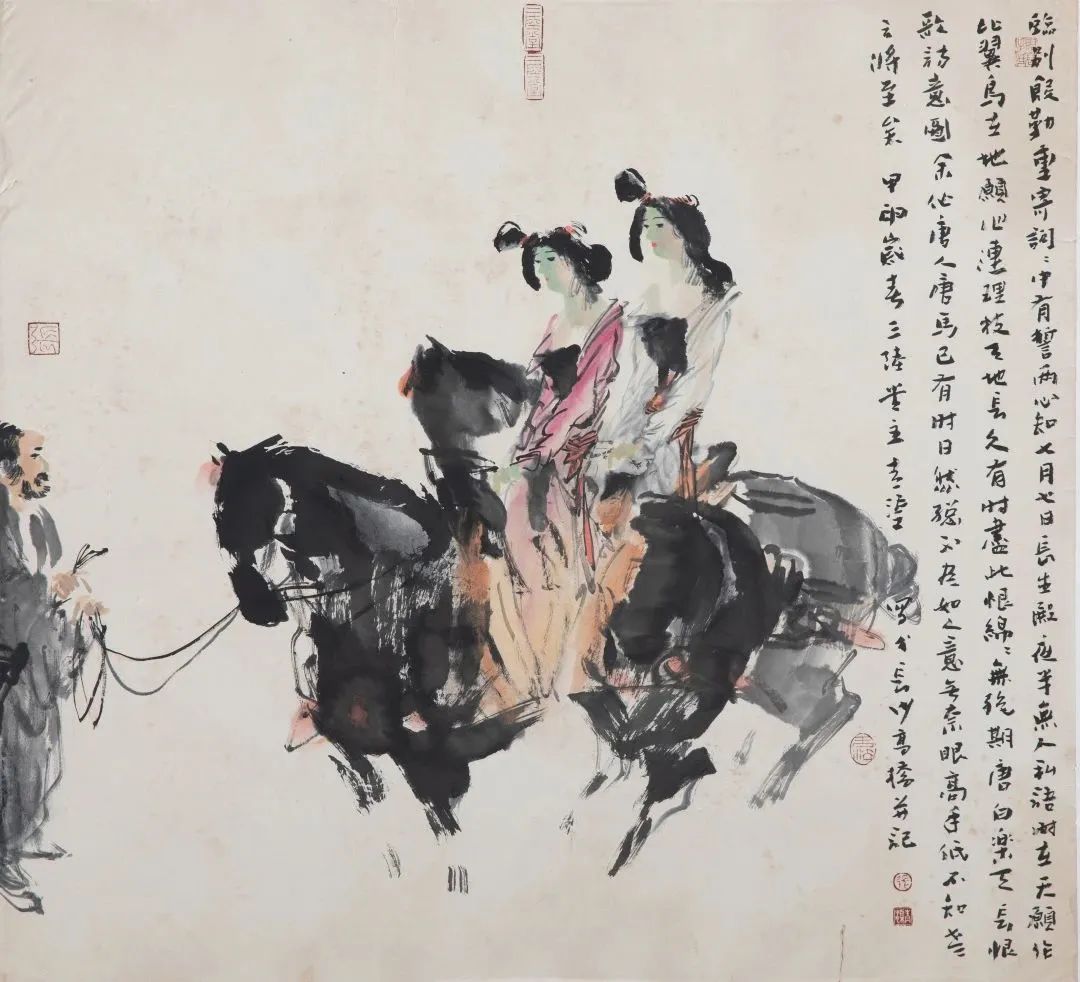 臨別殷勤重寄詞〻中有誓兩心知七月七日長生殿夜半無人私語時在天願作
比翼鳥在地願作連理枝天地長久有時盡此恨綿〻無絕期唐白樂天長恨
歌詩意圖余作唐人唐馬已有時日然總不盡如人意無奈眼高手低不知老
之將至矣 甲申歲春三陸堂主 寫於長沙高橋并記
三陸堂
三陸堂